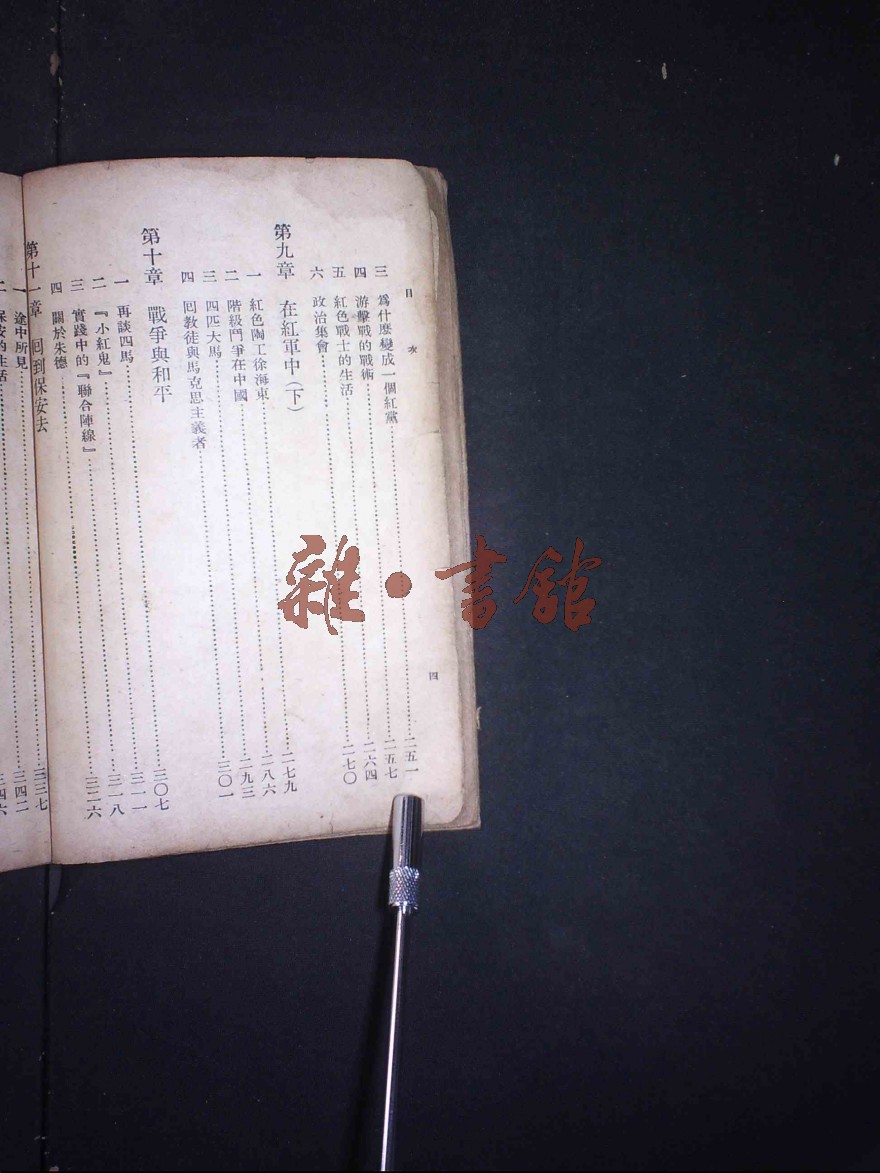 目次
四
三 為什麼變成一個紅黨……二五一
四 游擊戰的戰術……二五七
五 紅色戰士的生活……二六四
六 政治集會……二七〇
第九章 在紅軍中（下）
一 紅色陶工徐海東……二七九
二 階級鬥爭在中國……二八六
三 四匹大馬……二九三
四 回教徒與馬克思主義者……三〇一
第十章 戰爭與和平
一 再談四馬……三〇七
二 『小紅鬼』……三一一
三 實踐中的『聯合陣線』……三一八
四 關於朱德……三二六
第十一章 回到保安去
一 途中所見……三三七
二 保安的生活……三四二
雜·書館